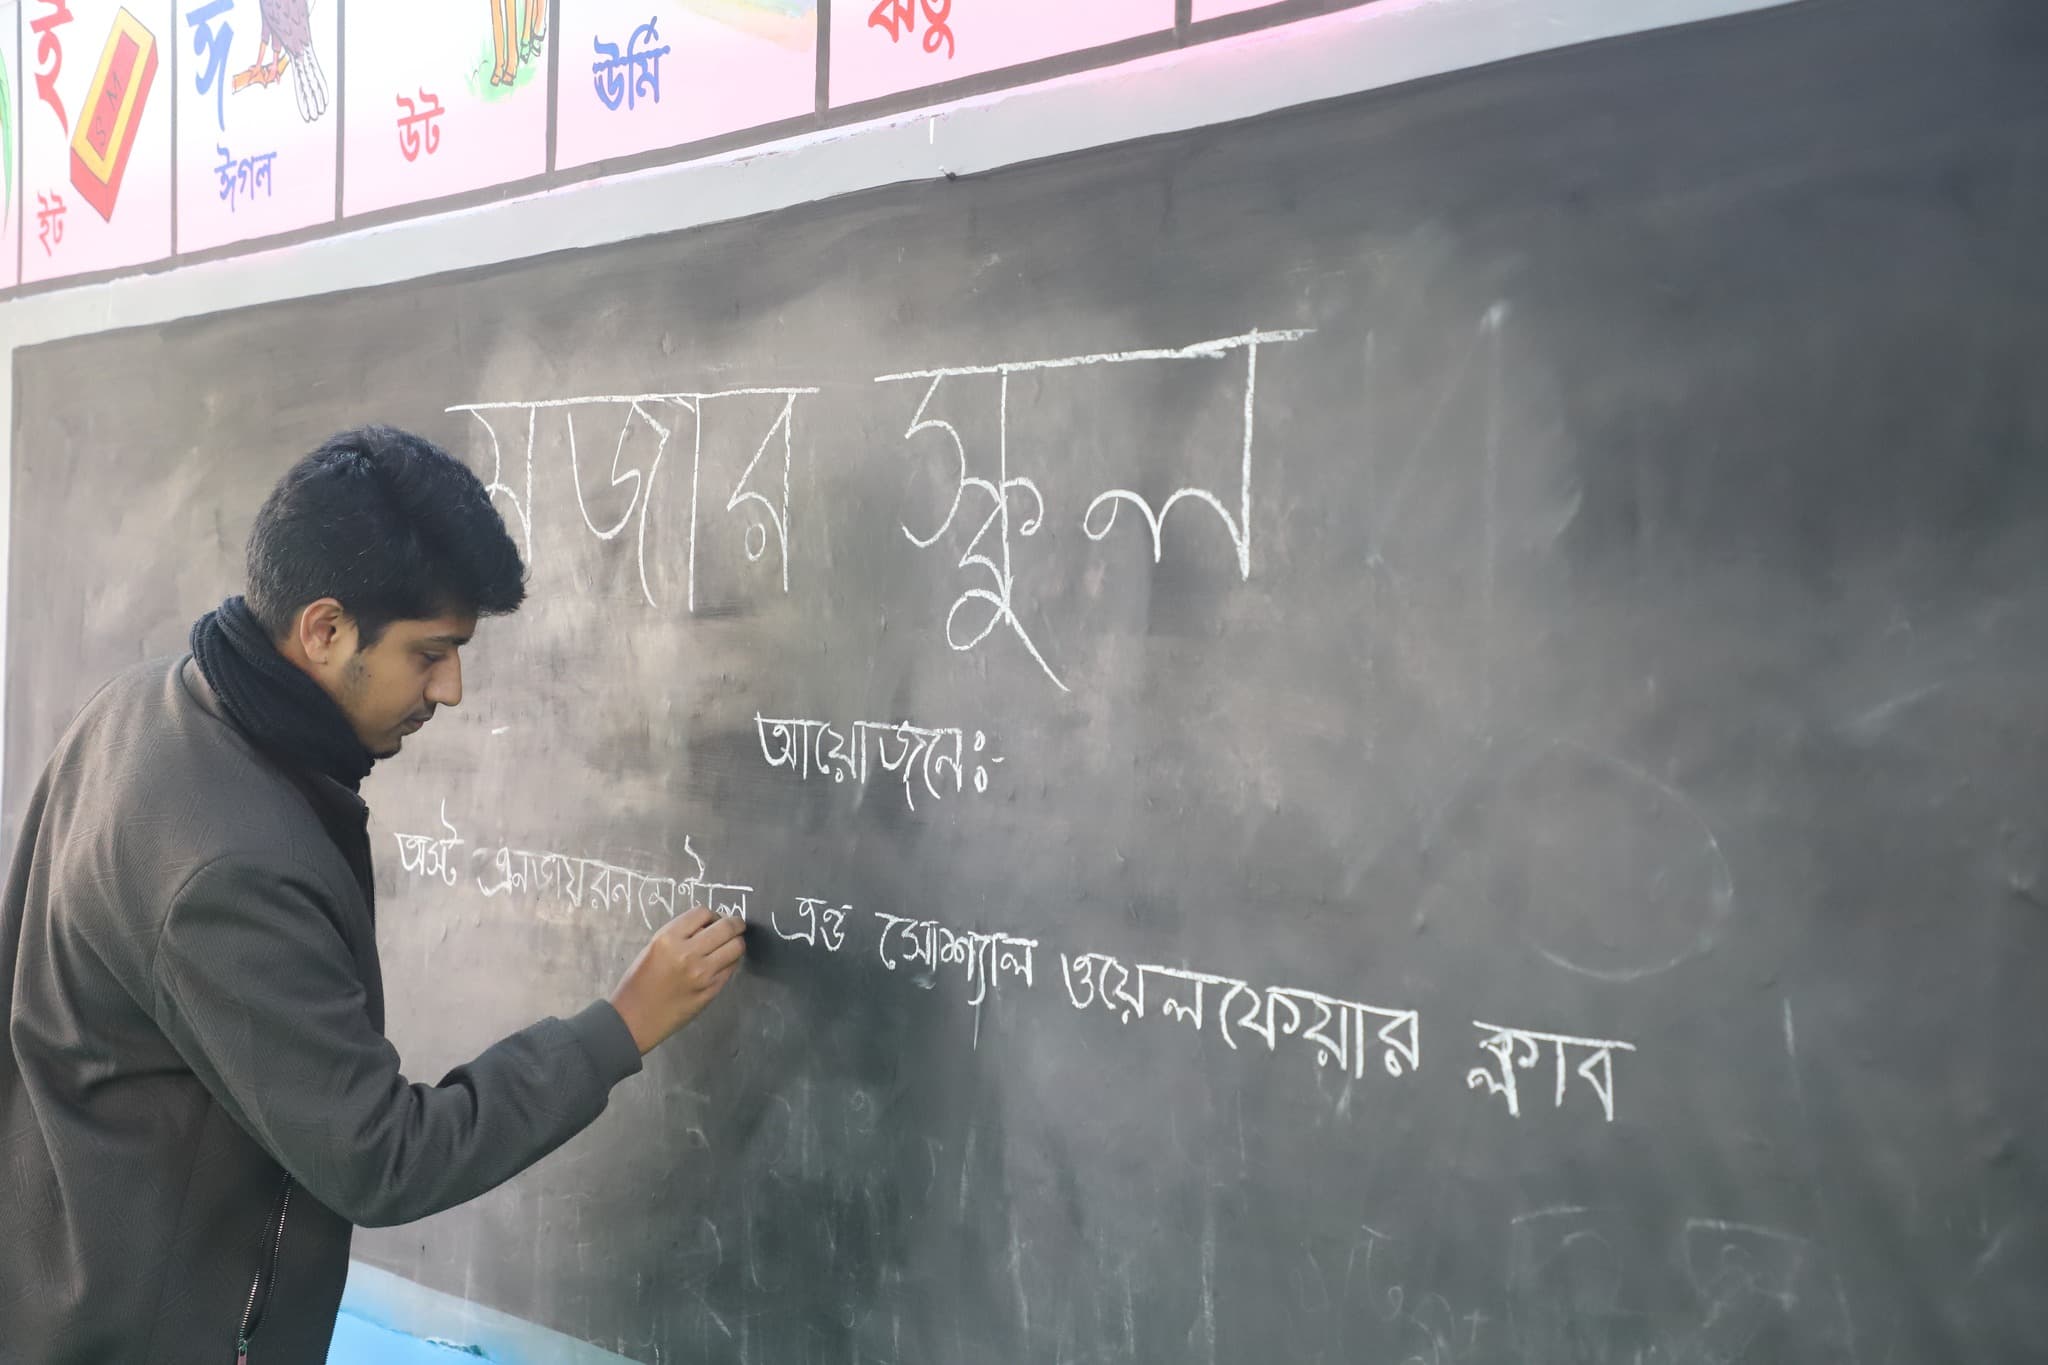 ই ঈ
ইট ঈগল উট ঊর্মি ঋতু
মজার স্কুল
আয়োজনেঃ-
অস্ট এনভায়রনমেন্টাল এন্ড সোশ্যাল ওয়েলফেয়ার ক্লাব